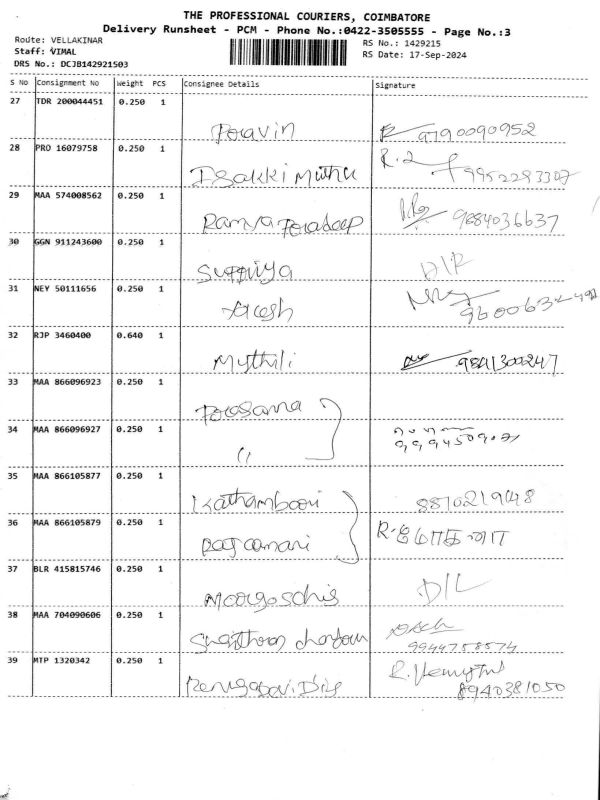 THE PROFESSIONAL COURIERS, COIMBATORE
Delivery Runsheet - PCM - Phone No.:0422-3505555 - Page No.:3
Route: VELLAKINAR
Staff: VIMAL
DRS No.: DCJB142921503
RS No.: 1429215
RS Date: 17-Sep-2024
S No Consignment No Weight PCS Consignee Details Signature
27 TDR 200044451 0.250 1
Pravin 9790090952
28 PRO 16079758 0.250 1
Isakki Muthu R.2 9952283307
29 MAA 574008562 0.250 1
Ramya Pradeep 9884036637
30 GGN 911243600 0.250 1
Suppriya DIR
31 NEY 50111656 0.250 1
32 RJP 3460400 0.640 1
Mythili 9841300247
33 MAA 866096923 0.250 1
Prasanna
34 MAA 866096927 0.250 1
"
35 MAA 866105877 0.250 1
8870219148
36 MAA 866105879 0.250 1
Rajamani
37 BLR 415815746 0.250 1
DIL
38 MAA 704090606 0.250 1
9944758574
39 MTP 1320342 0.250 1
8940381050